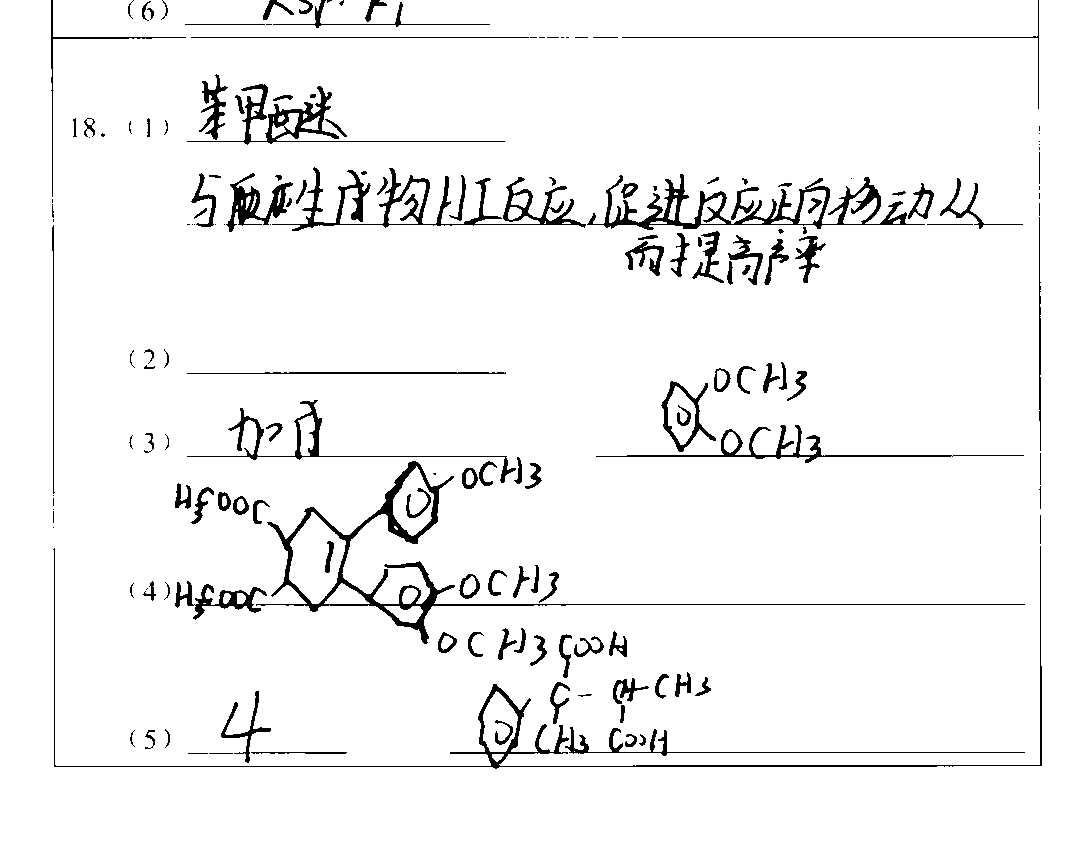 (6)
18. (1) 苯甲醚
与反应生成物HI反应,促进反应正向移动从
而提高产率
(2)
OCH3
OCH3
(3) 加成
OCH3
H3COOC
(4) H3COOC OCH3
OCH3
COOH
C - CH-CH3
(5) 4 CH3 COOH